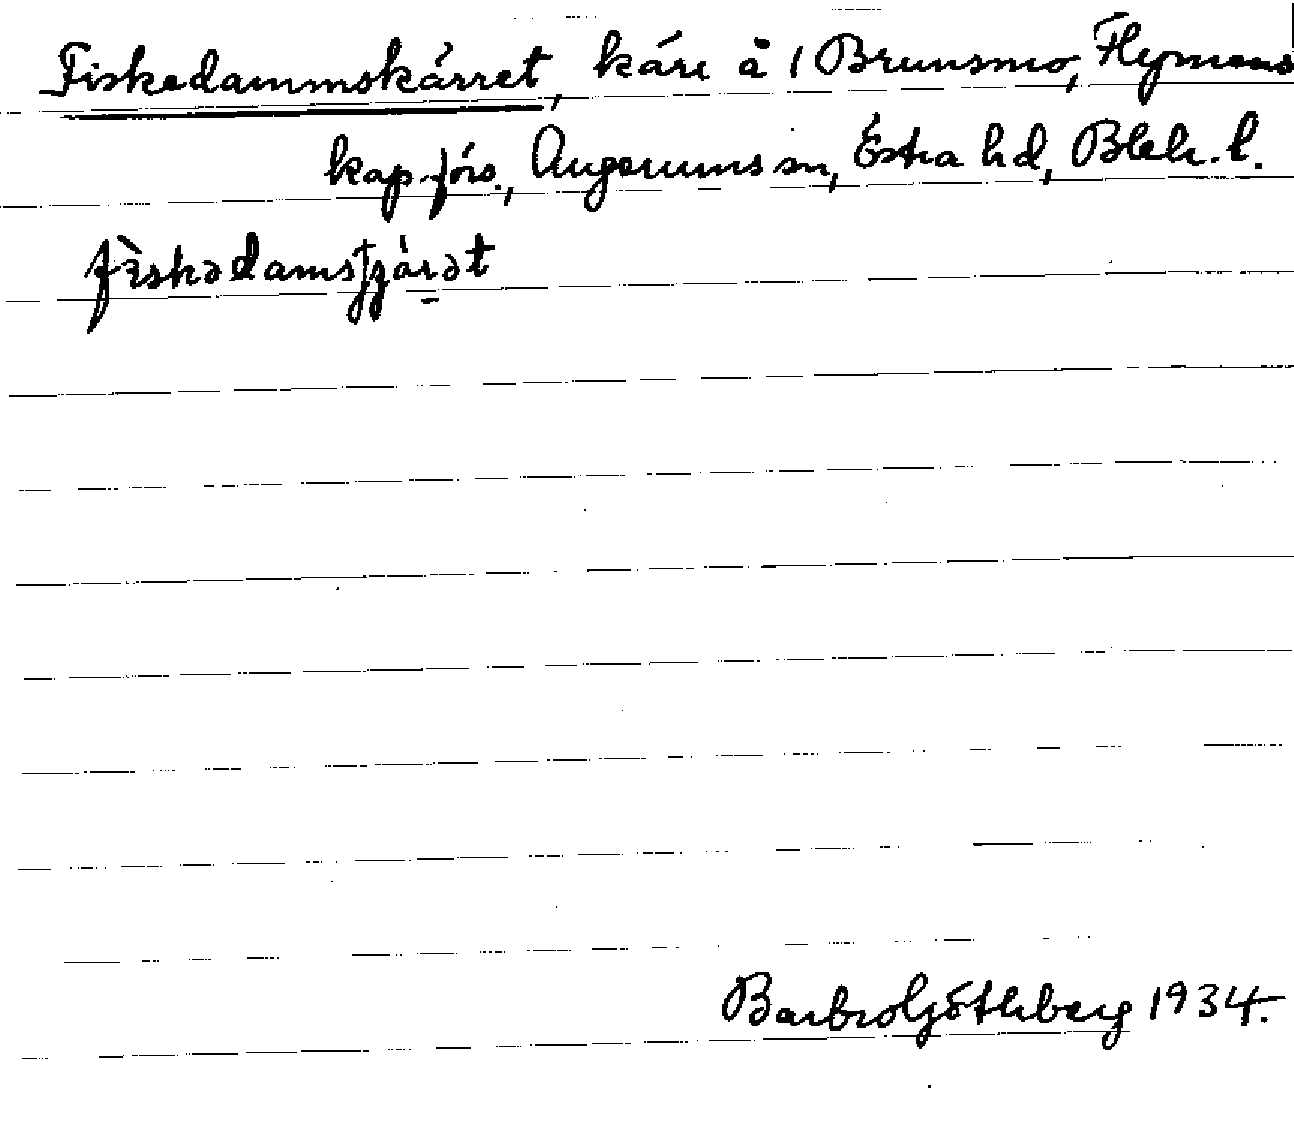 Fiskedammskärret, kärr å 1 Brunsmo, Flymens
kap.förs., Augerums sn, Östra hd, Blek. l.
fìskədamsʃɟärət
Barbro Göthberg 1934.